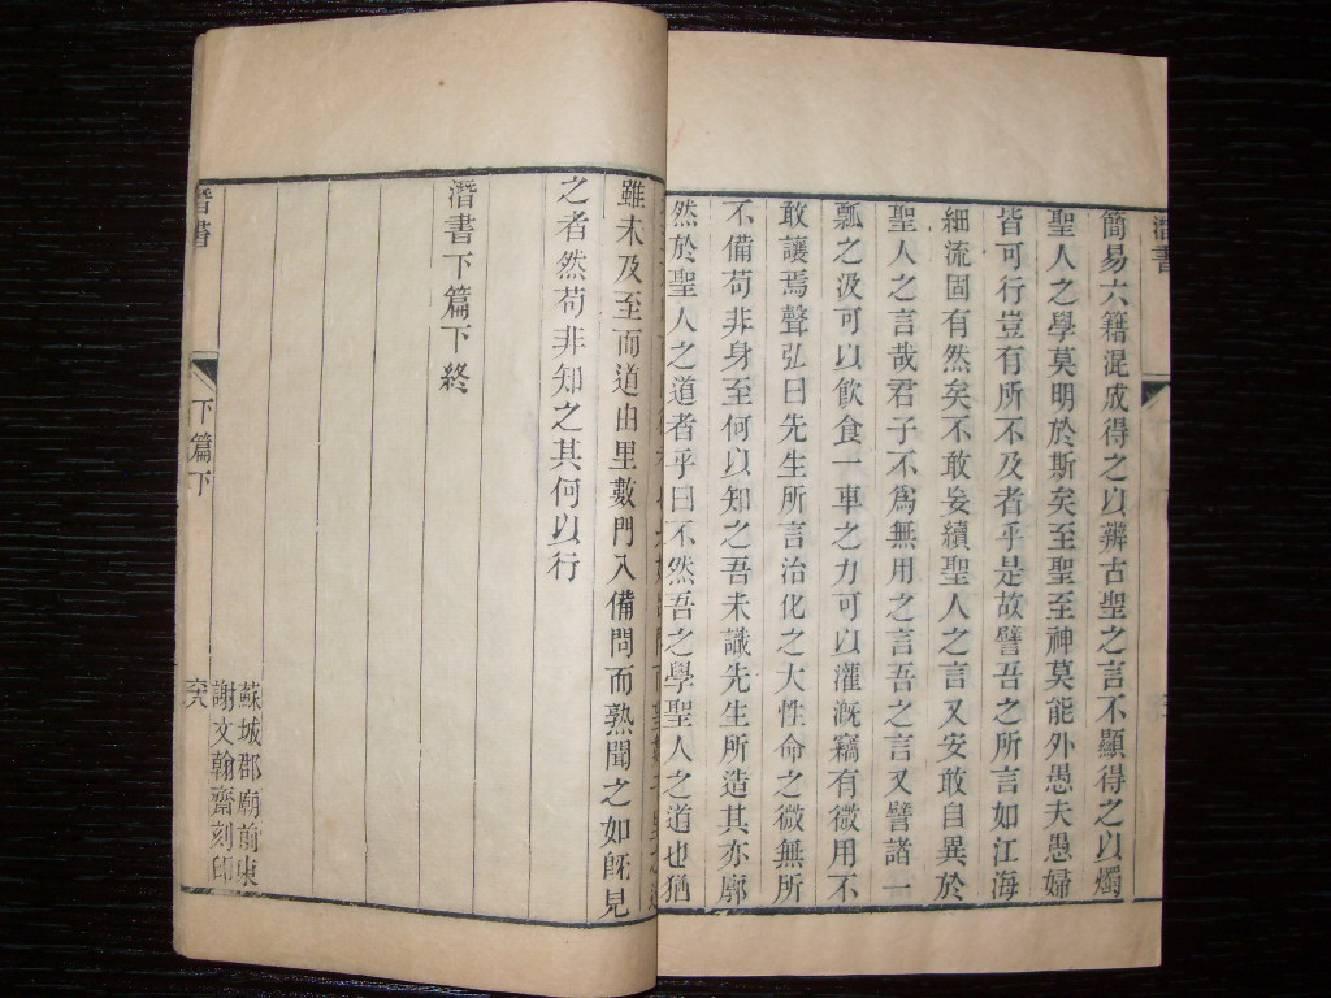 潛書
簡易六籍混成得之以辨古聖之言不顯得之以燭
聖人之學莫明於斯矣至聖至神莫能外愚夫愚婦
皆可行豈有所不及者乎是故譬吾之所言如江海
細流固有然矣不敢妄續聖人之言又安敢自異於
聖人之言哉君子不爲無用之言吾之言又譬諸一
瓢之汲可以飲食一車之力可以灌溉竊有微用不
敢讓焉聲弘曰先生所言治化之大性命之微無所
不備苟非身至何以知之吾未識先生所造其亦廓
然於聖人之道者乎曰不然吾之學聖人之道也猶
雖未及至而道由里藪門入備問而熟聞之如旣見
之者然苟非知之其何以行
潛書下篇下終
蘇城郡廟前東
謝文翰齋刻印
潛書
下篇下
六八